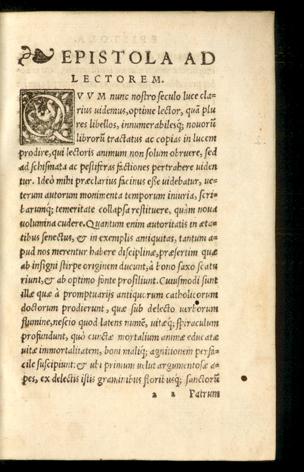 EPISTOLA AD
LECTOREM.
QVVM nunc nostro seculo luce cla-
rius uidemus, optime lector, quã plu
res libellos, innumerabilesq; nouorũ
librorũ tractatus ac copias in lucem
prodire, qui lectoris animum non solum obruere, sed
ad schismata ac pestiferas factiones pertrahere uiden
tur. Ideò mihi præclarius facinus esse uidebatur, ue-
terum autorum monimenta temporum iniuria, scri-
barumq; temeritate collapsa restituere, quàm noua
uolumina cudere. Quantum enim autoritatis in æta-
tibus senectus, & in exemplis antiquitas, tantum a-
pud nos merentur habere disciplinæ, præsertim quæ
ab insigni stirpe originem ducunt, à bono saxo scatu
riunt, & ab optimo fonte prosiliunt. Cuiusmodi sunt
illæ quæ à promptuarijs antiquorum catholicorum
doctorum prodierunt, quæ sub delecto uerborum
flumine, nescio quod latens numẽ, uitæq; spiraculum
profundunt, quò cunctæ mortalium animæ educatæ
uitæ immortalitatem, boni maliq; agnitionem perfa-
cile suscipiunt: & ubi primum uelut argumentosæ a-
pes, ex delectis istis graminibus florit usq; sanctorũ
a 2 Patrum